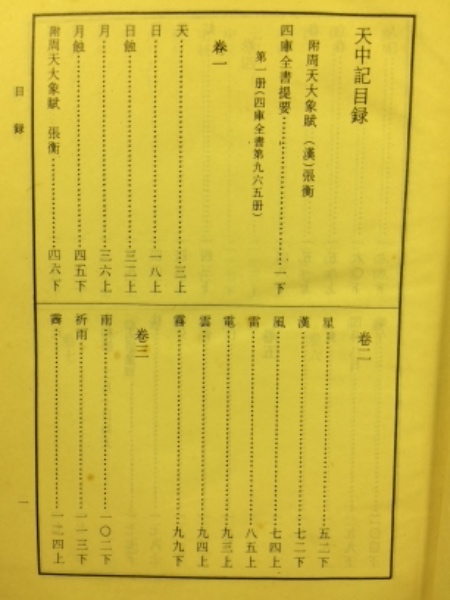 天中記目録
附周天大象賦 (漢)張衡
四庫全書提要…………一下
第一册(四庫全書第九六五册)
卷一
天…………三上
日…………一八上
日蝕…………三二上
月…………三六上
月蝕…………四五下
附周天大象賦 張衡…………四六下
卷二
星…………五二下
漢…………七二下
風…………七四上
雷…………八五上
電…………九三上
雲…………九四上
霧…………九九下
卷三
雨…………一〇二下
祈雨…………一一三下
目録
一